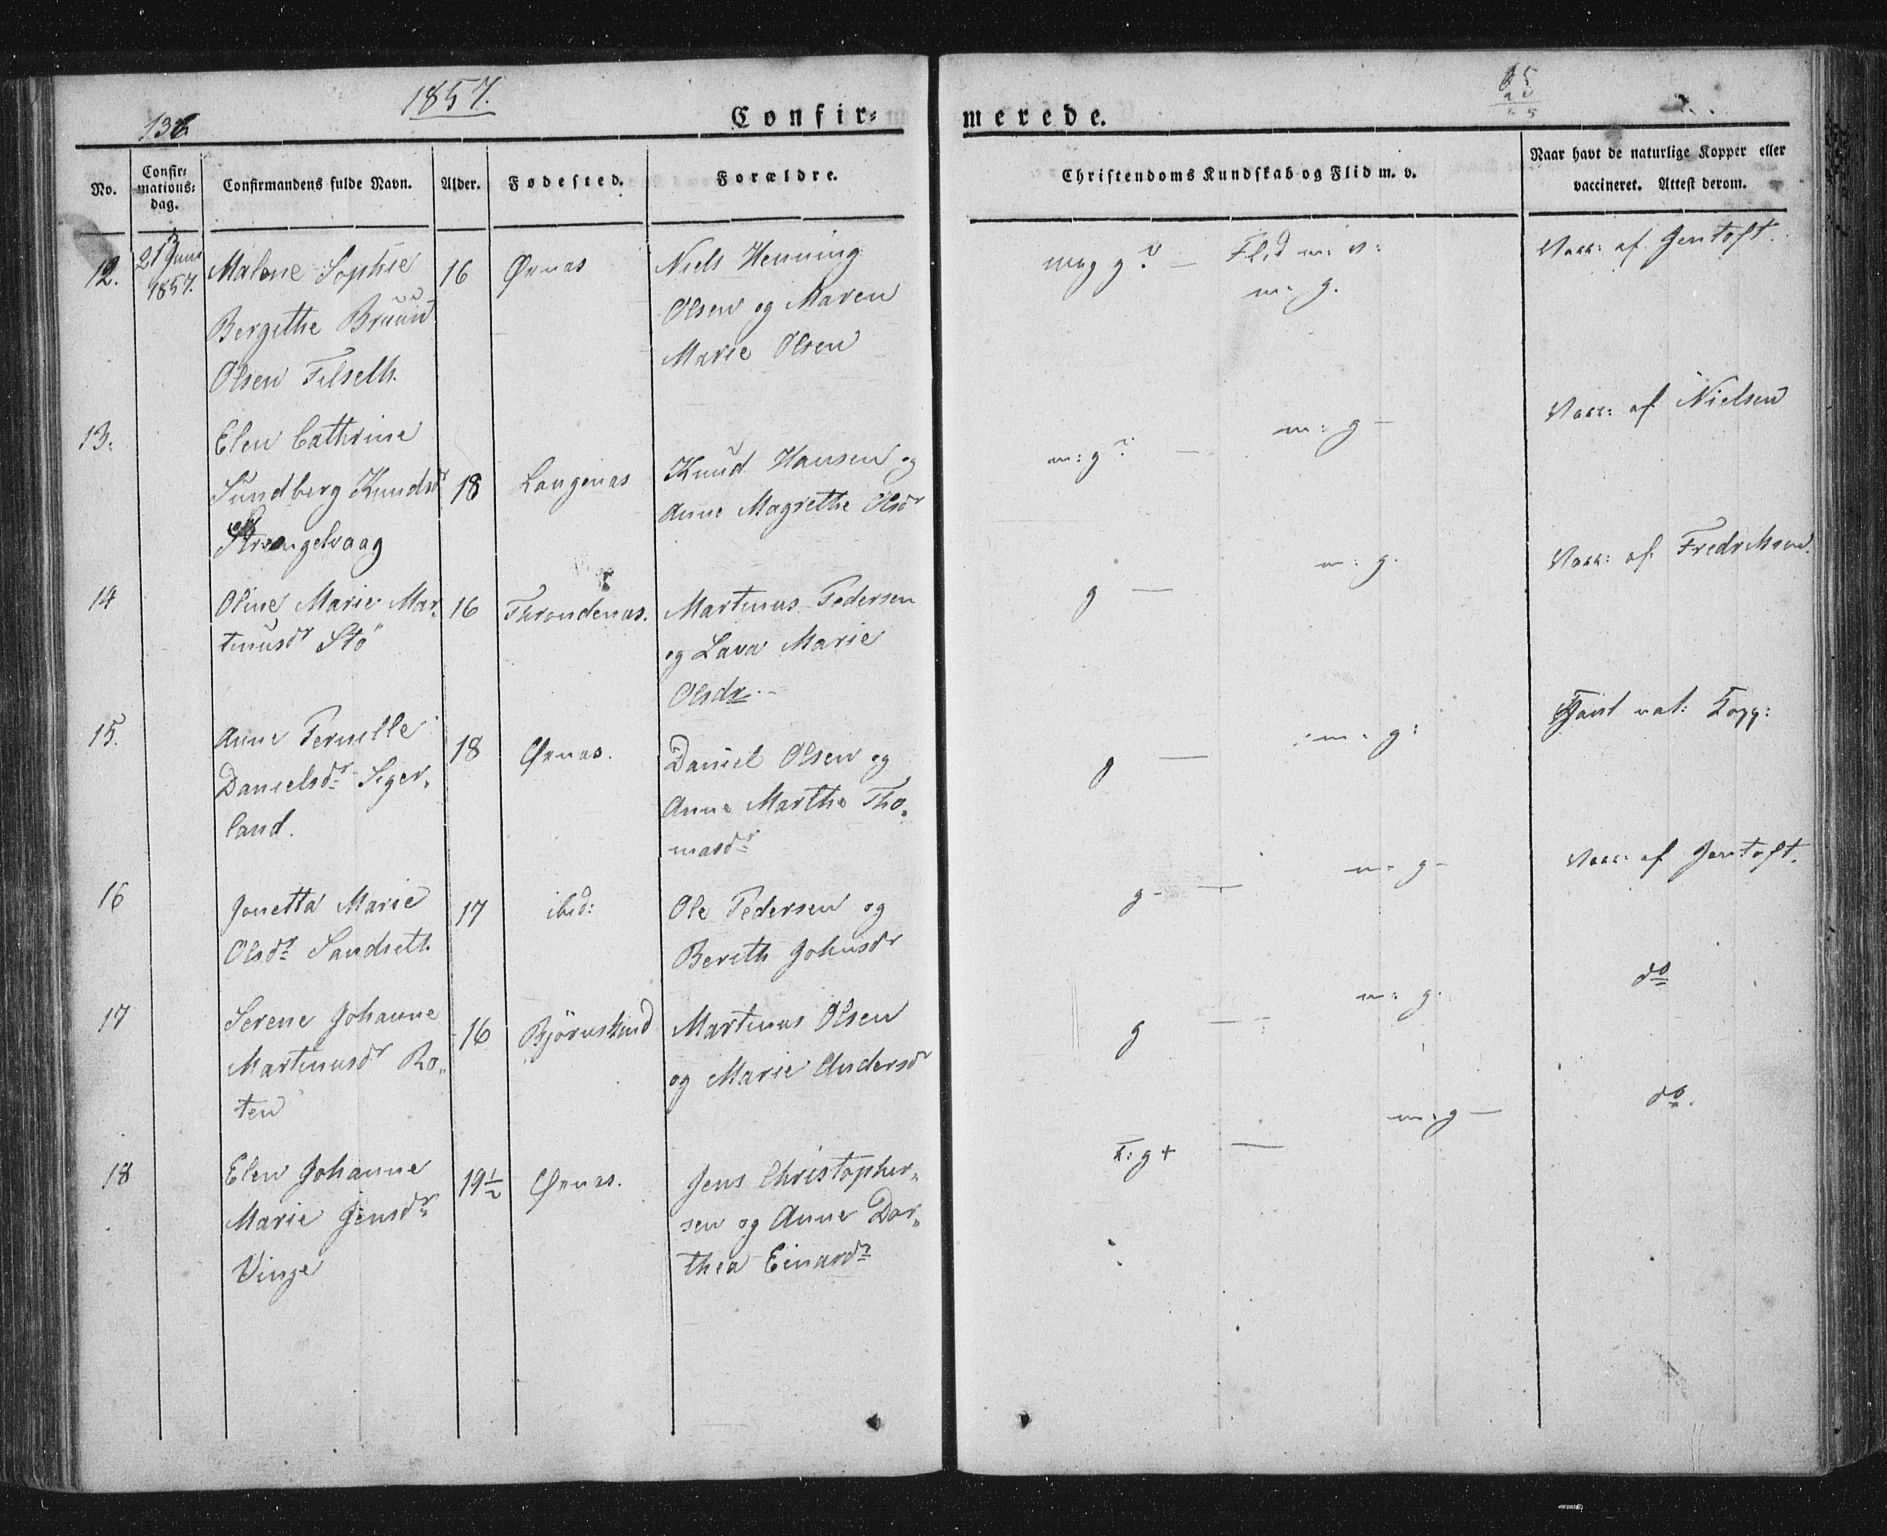 136
1857.
Confir=
No.
Confir=
mations=
dag.
Confirmandens fulde Navn.
Alder.
Fødested.
Forældre.
merede.
Christendoms Kundskab og Flid m. v.
Naar havt de naturlige Kopper eller
vaccineret. Attest derom.
12.
21 Juni
1857.
Malene Sophie
Bergithe Bruun
Olsen Tilseth.
16
Øxnæs
Niels Henning
Olsen og Maren
Marie Olsen
meg g? — Flid m: v:
m: g.
Vacc: af Jentoft.
13.
Elen Cathrine
Sundberg Knudsdr
Strengelvaag
18
Langenæs
Knud Hansen og
Anne Magrethe Olsdr
m: g? — m: g —
Vacc: af Nielsen
14
Oline Marie Mar-
tinusdr Stö
16
Throndenæs.
Martinus Pedersen
og Lava Marie
Olsdr.
g — m: g.
Vacc: af Fredriksen.
15.
Anne Pernille
Danielsdr Siger-
land.
18
Øxnæs.
Daniel Olsen og
Anne Marthe Tho-
masdr
g — m: g:
Havt nat: Kopp:
16
Jonetta Marie
Olsdr Sandsett.
17
ibid:
Ole Pedersen og
Bereth Johnsdr
g — m: g —
Vacc: af Jentoft.
17
Serene Johanne
Martinusdr Ro-
ten
16
Björnskind
Martinus Olsen
og Marie Andersdr
g — m: g.
do
18
Elen Johanne
Marie Jensdr
Vinje
19½
Øxnæs.
Jens Christopher-
sen og Anne Dor-
thea Einarsdr
T: g + — m: g —
do.